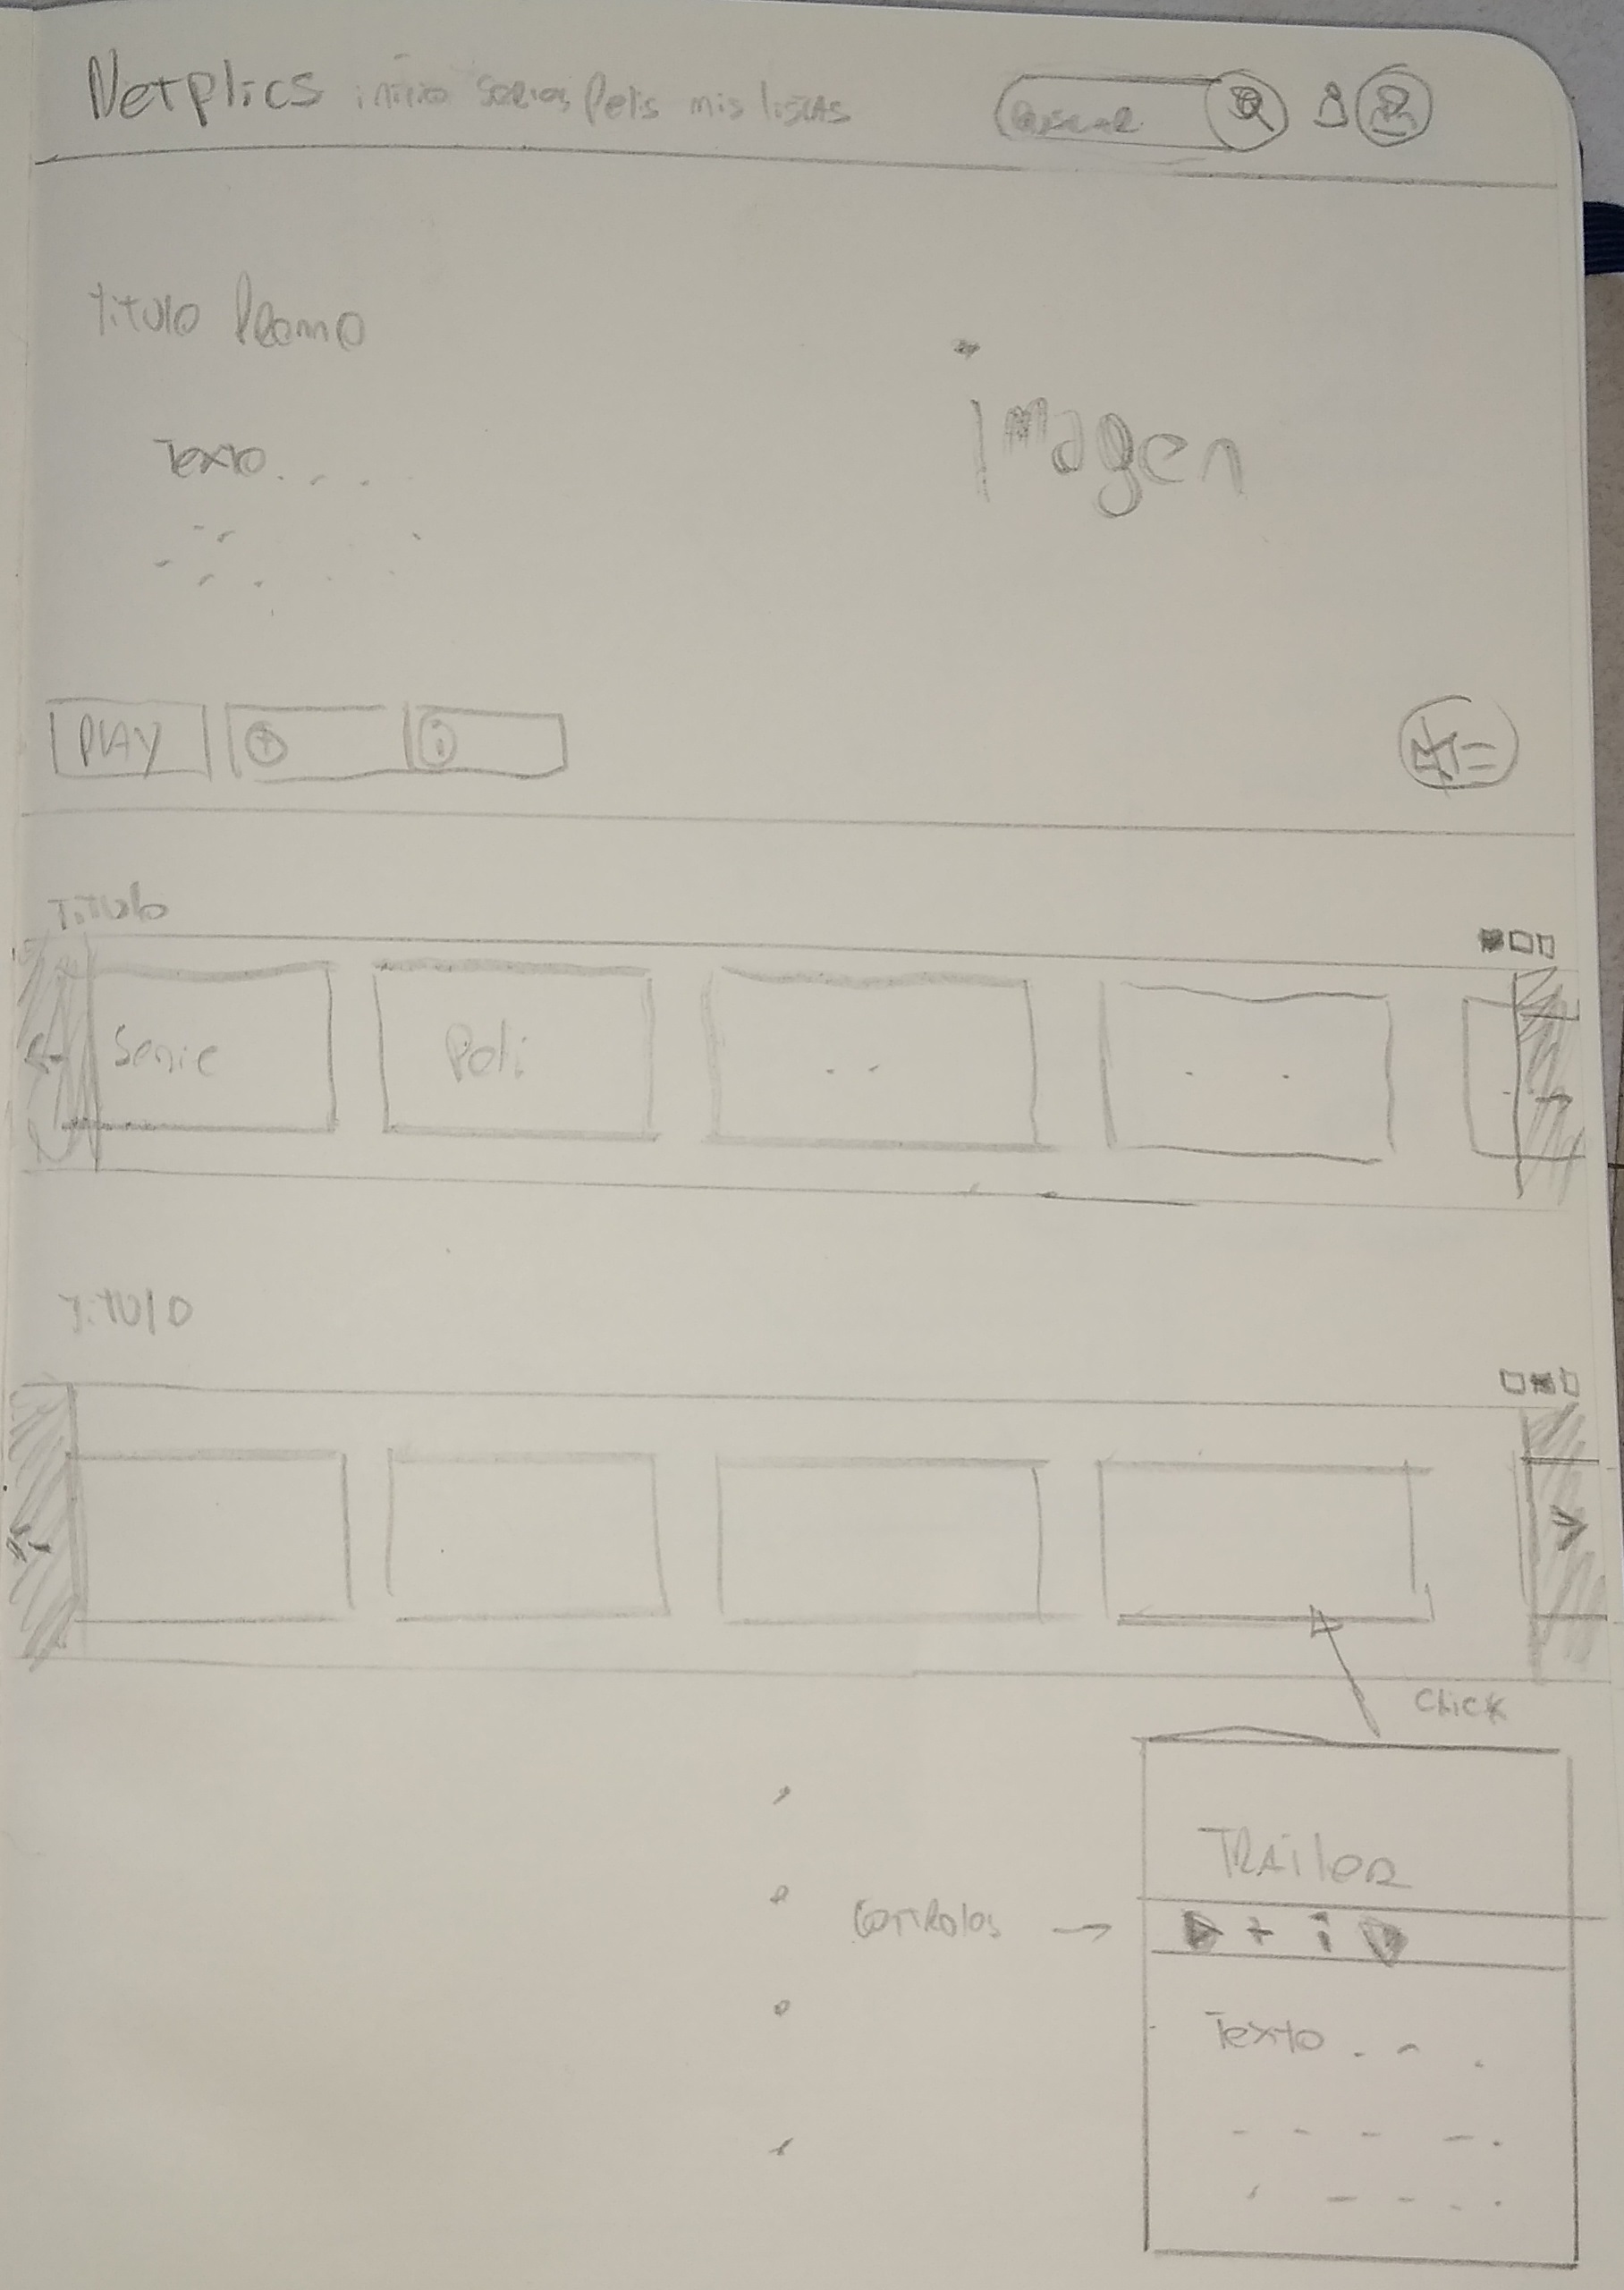 Netplics inicio series Pelis mis listas Buscar
Titulo Promo
Texto....
Imagen
PLAY + i
Titulo
Serie Peli .. . .
Titulo
Click
TRAiler
Controles → + i
Texto...